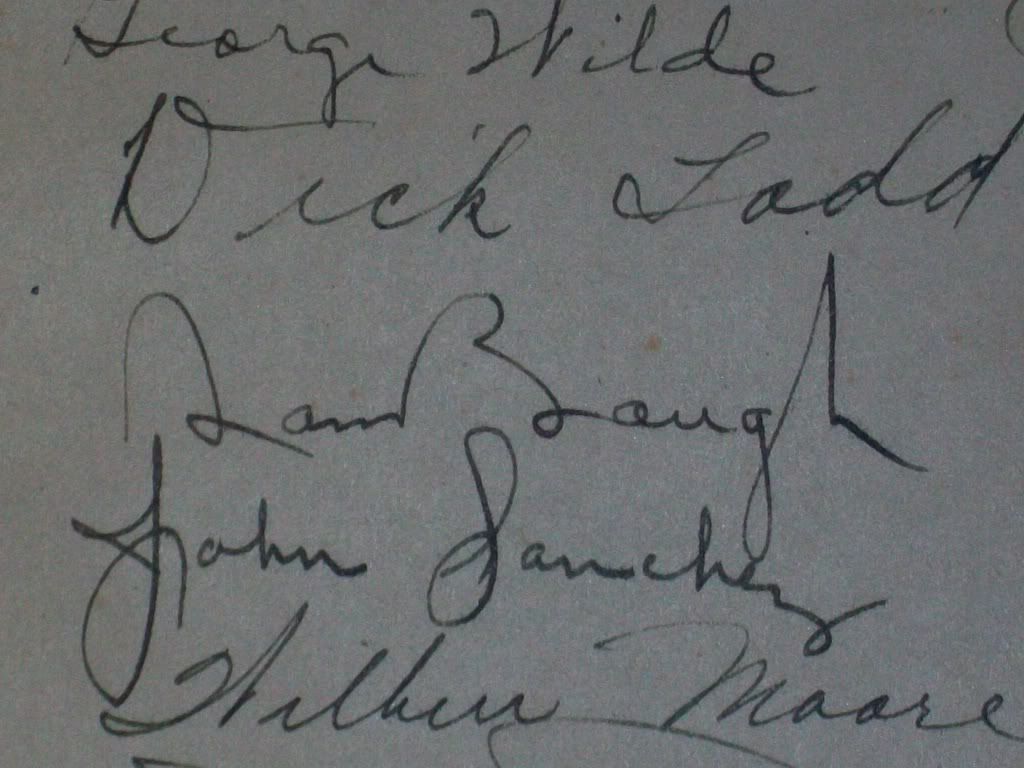 George Wilde
Dick Todd
Sam Baugh
John Sanchez
Wilbur Moore